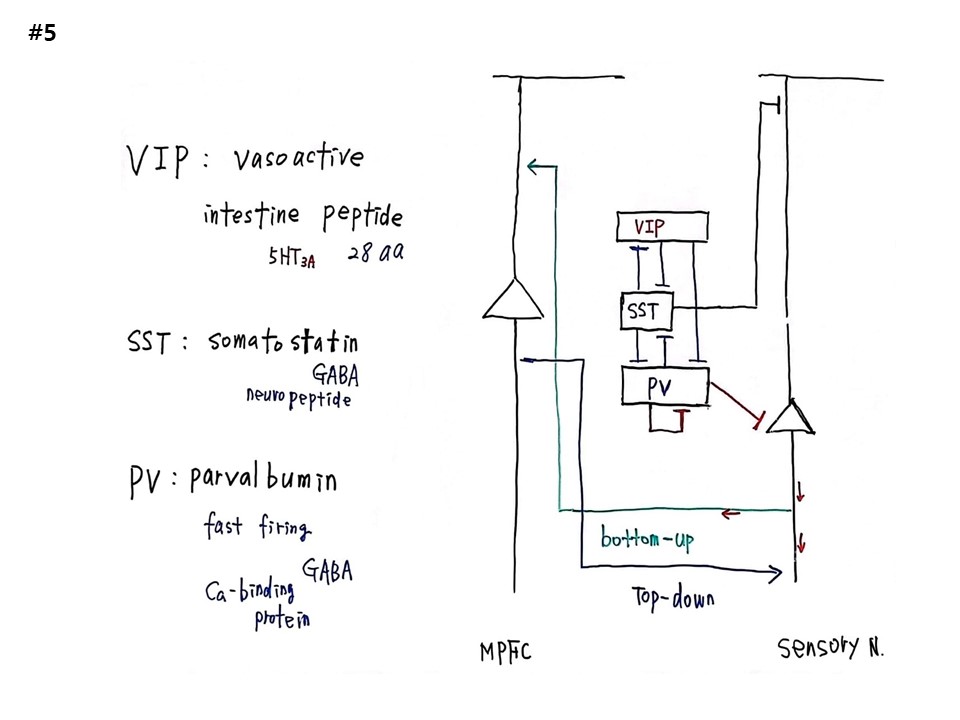 #5
VIP : vasoactive
intestine peptide
5HT3A 28 aa
SST : somatostatin
GABA
neuropeptide
PV : parvalbumin
fast firing
GABA
Ca-binding
protein
VIP
SST
PV
bottom-up
Top-down
MPFC
Sensory N.